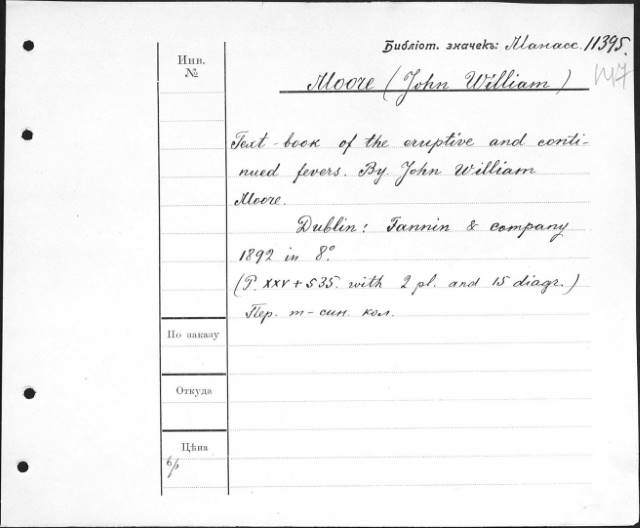 Библіот. значекъ: Манасс. 11395.
Инв.
№
147
Moore (John William)
Text-book of the eruptive and conti-
nued fevers. By John William
Moore.
Dublin: Fannin & company
1892 in 8º.
(P. XXV + 535. with 2 pl. and 15 diagr.)
Пер. т-син. кол.
По заказу
Откуда
Цѣна
б/р